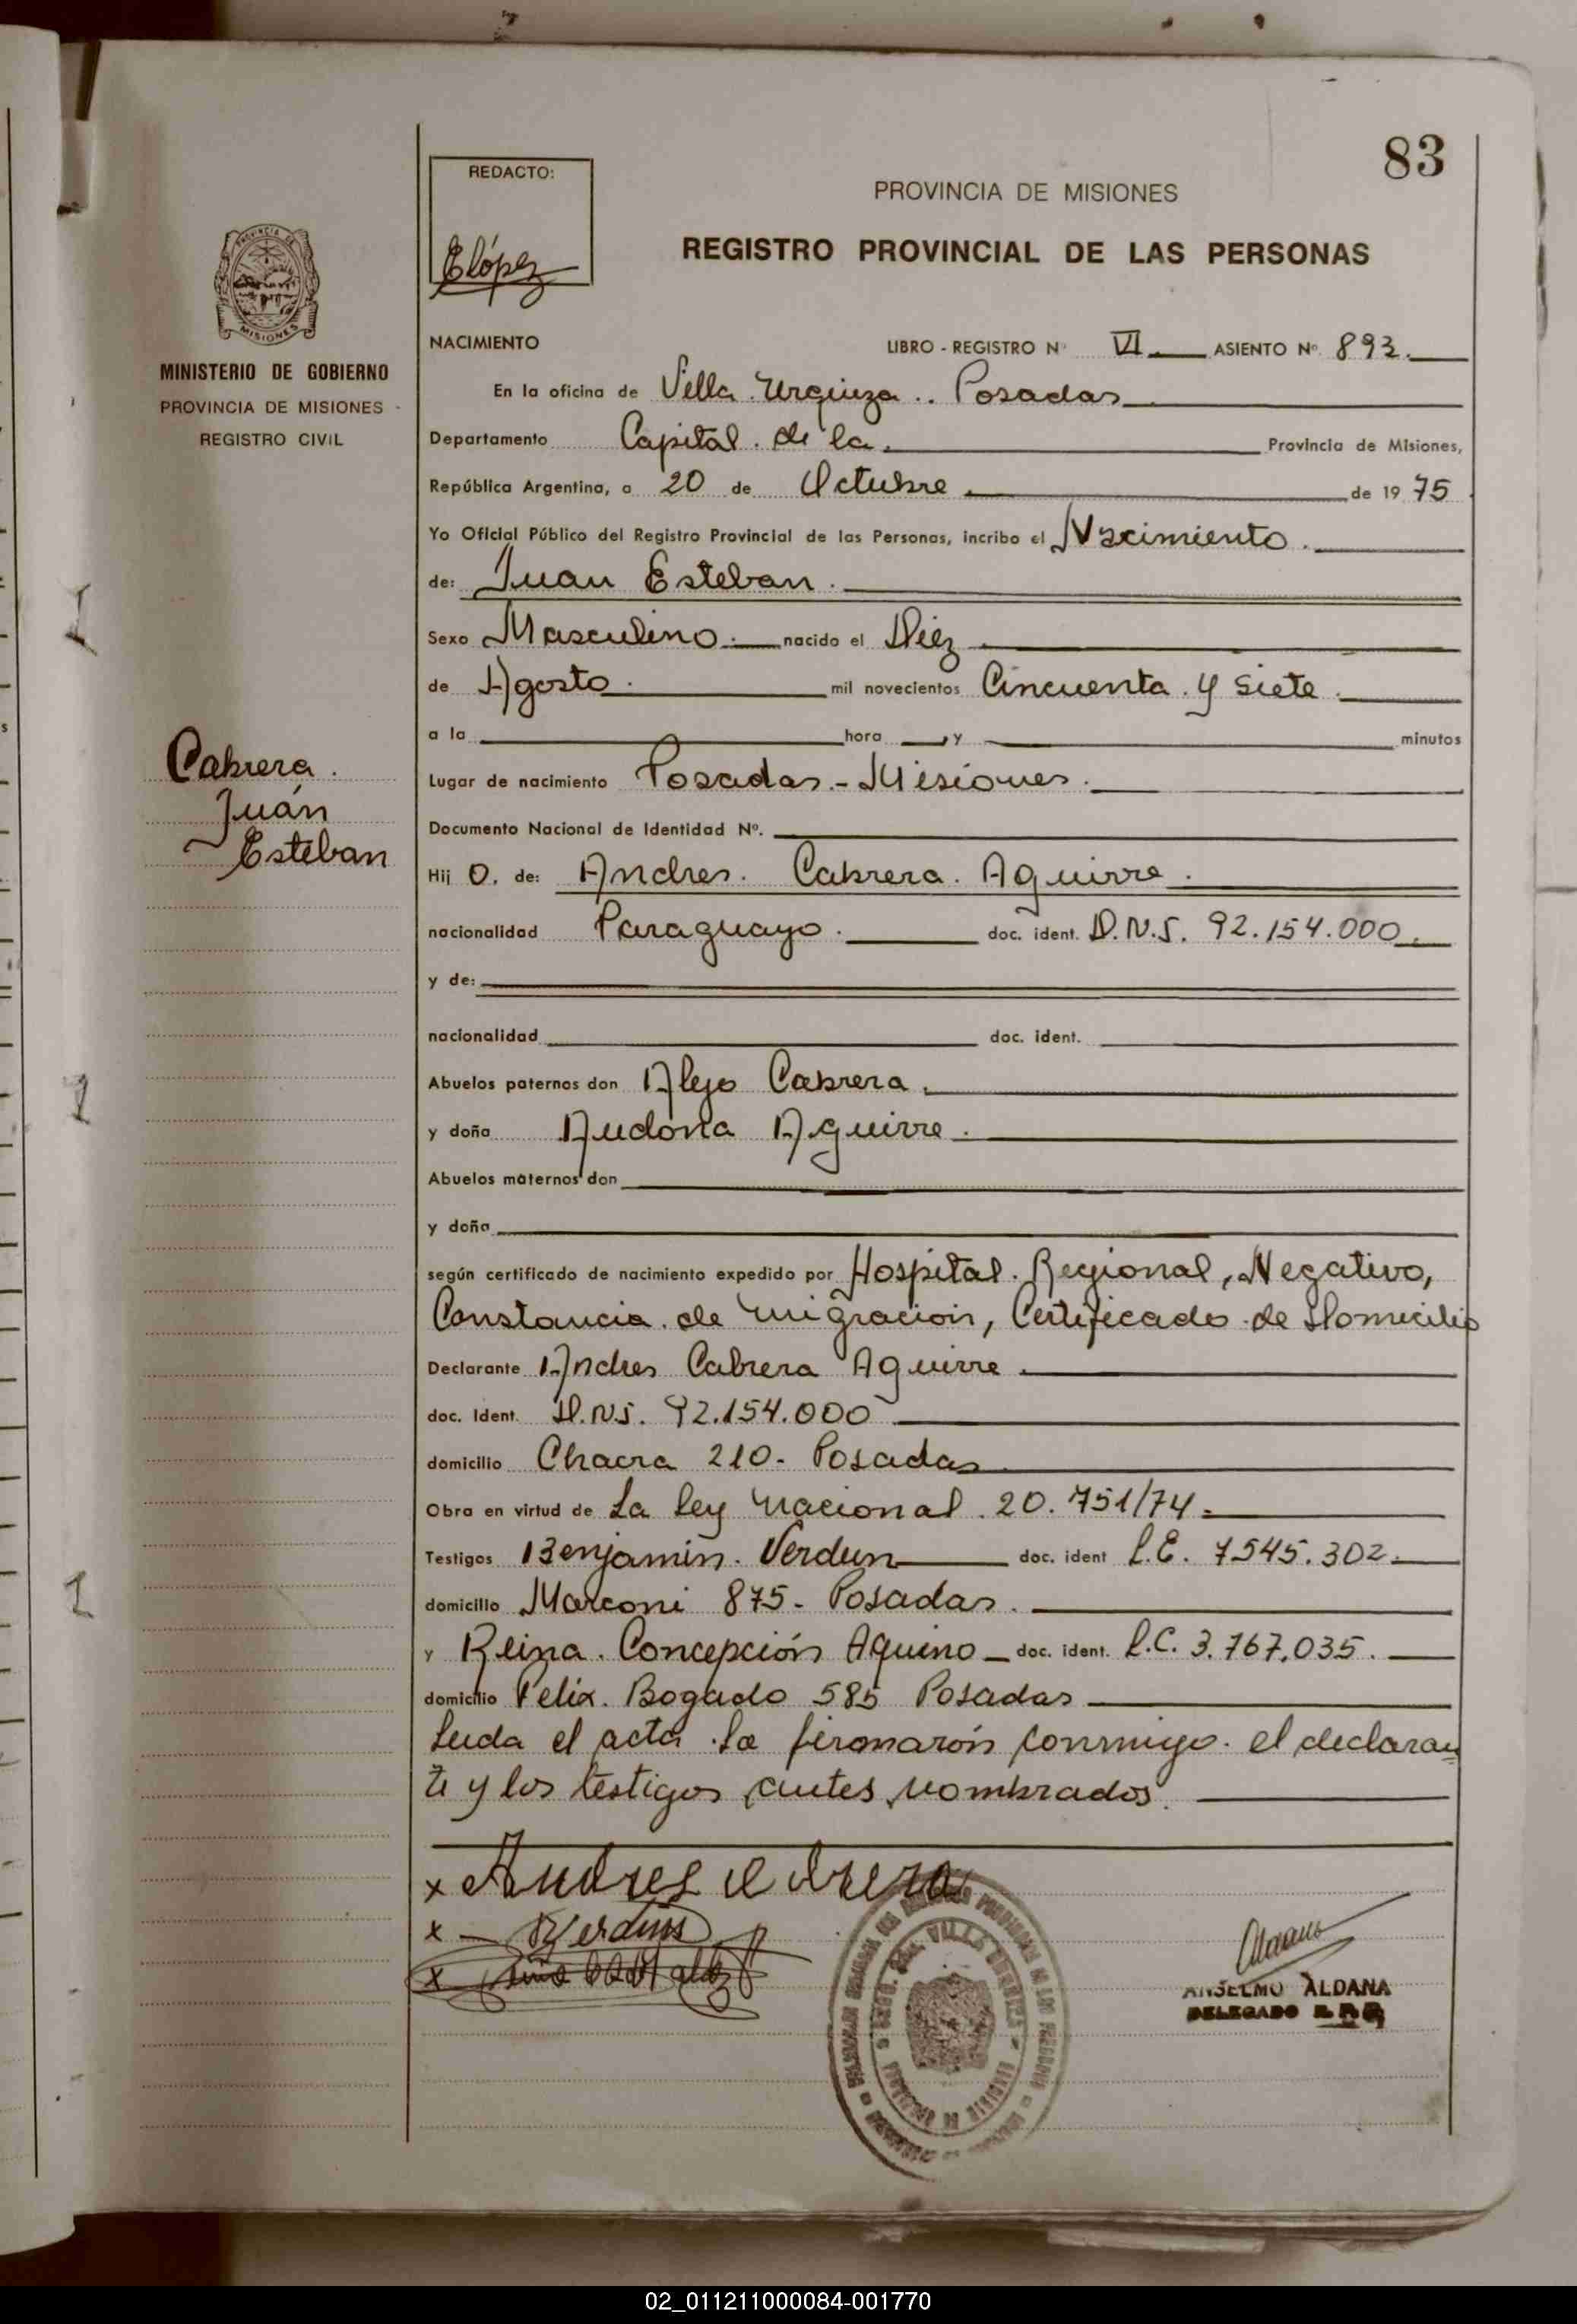 83
REDACTO:
Elópez
PROVINCIA DE MISIONES
REGISTRO PROVINCIAL DE LAS PERSONAS
MISIONES
MINISTERIO DE GOBIERNO
PROVINCIA DE MISIONES
REGISTRO CIVIL
Cabrera.
Juán
Esteban
NACIMIENTO LIBRO - REGISTRO Nº VI. ASIENTO Nº 893.
En la oficina de Villa Urquiza.. Posadas
Departamento Capital. de la. Provincia de Misiones,
República Argentina, a 20 de Octubre. de 19 75
Yo Oficial Público del Registro Provincial de las Personas, incribo el Nacimiento.
de: Juan Esteban.
Sexo Masculino. nacido el Diez
de Agosto. mil novecientos Cincuenta y siete.
a la hora y minutos
Lugar de nacimiento Posadas.- Misiones.
Documento Nacional de Identidad Nº.
Hij o. de: Andres. Cabrera. Aguirre.
nacionalidad Paraguayo. doc. ident. D.N.I. 92.154.000.
y de:
nacionalidad doc. ident.
Abuelos paternos don Alejo Cabrera.
y doña Audona Aguirre.
Abuelos maternos don
y doña
según certificado de nacimiento expedido por Hospital. Regional, Negativo,
Constancia. de migración, Certificado de Domicilio
Declarante Andres Cabrera Aguirre.
doc. Ident. D.N.I. 92.154.000
domicilio Chacra 210- Posadas
Obra en virtud de La ley Nacional. 20.751/74.
Testigos Benjamin. Verdun doc. ident L.E. 7545.302.
domicilio Marconi 875- Posadas.
y Reina. Concepción Aquino doc. ident. L.C. 3.767.035.
domicilio Felix. Bogado 585 Posadas
Leida el acta la firmarón conmigo. el declaran
te y los testigos antes nombrados.
x Andres Cabrera
x Verdun
x
ANSELMO ALDANA
DELEGADO
02_011211000084-001770